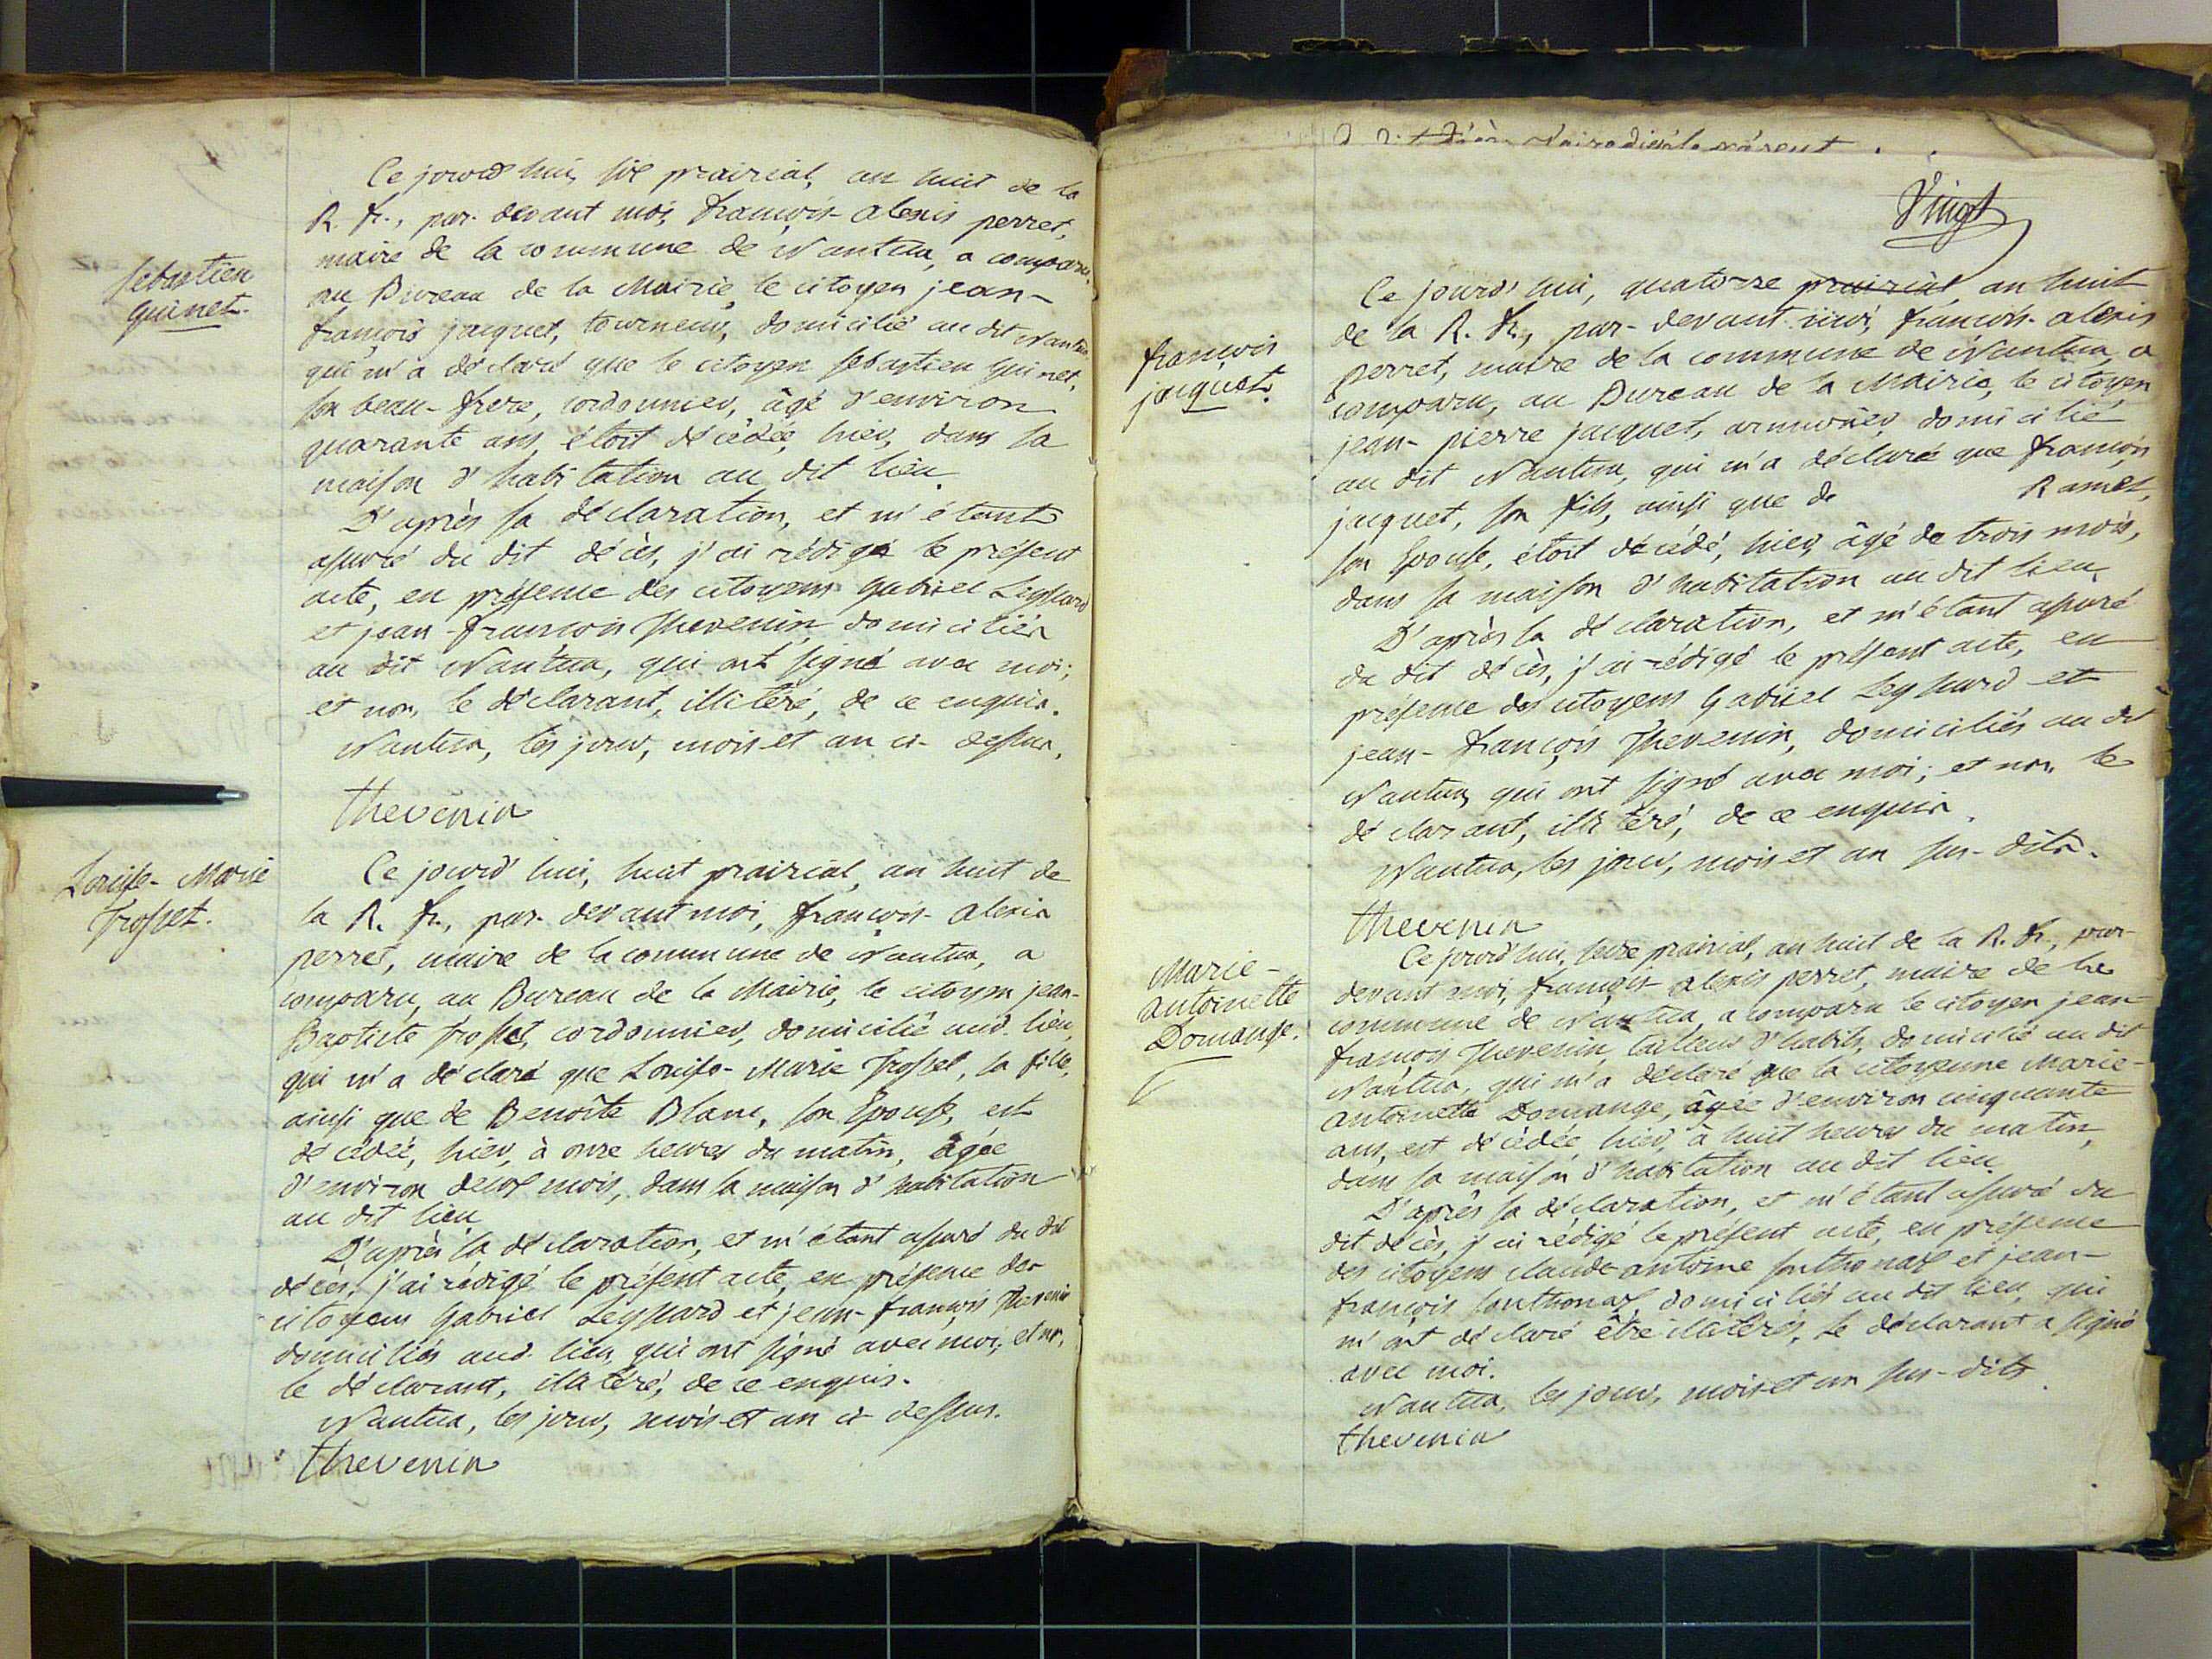 Sebastien
Guinet.
Ce jourd'hui, six prairial, an huit de la
R. fr., par-devant moi, françois-alexis perret,
maire de la commune de Nantua, a comparu,
au Bureau de la Mairie, le citoyen jean-
françois jacquet, tourneur, domicilié au dit Nantua
qui m'a déclaré que le citoyen Sebastien Guinet,
son beau-frere, cordonnier, âgé d'environ
quarante ans, étoit décédé, hier, dans sa
maison d'habitation au dit lieu.
D'après sa déclaration, et m'étant
assuré du dit décès, j'ai rédigé le présent
acte, en présence des citoyens Gabriel Leyssard
et jean-françois Thevenin, domiciliés
au dit Nantua, qui ont signé avec moi;
et non, le déclarant, illitéré, de ce enquis.
Nantua, les jour, mois et an ci-dessus.
thevenin
Louise-Marie
Trosset.
Ce jourd'hui, huit prairial, an huit de
la R. fr., par-devant moi, françois-alexis
perret, maire de la commune de Nantua, a
comparu, au Bureau de la Mairie, le citoyen jean-
Baptiste Trosset, cordonnier, domicilié aud. lieu,
qui m'a déclaré que Louise-Marie Trosset, sa fille,
ainsi que de Benoîte Blanc, son Epouse, est
décédée, hier, à onze heures du matin, âgée
d'environ deux mois, dans sa maison d'habitation
au dit lieu.
D'après sa déclaration, et m'étant assuré du dit
décès, j'ai rédigé le présent acte, en présence des
citoyens Gabriel Leyssard et jean-françois Thevenin
domiciliés aud. lieu, qui ont signé avec moi; et non,
le déclarant, illitéré, de ce enquis.
Nantua, les jour, mois et an ci-dessus.
thevenin
Vingt
françois
jacquet.
Ce jourd'hui, quatorze prairial, an huit
de la R. fr., par-devant moi, françois-alexis
perret, maire de la commune de Nantua, a
comparu, au Bureau de la Mairie, le citoyen
jean-pierre jacquet, armurier, domicilié
au dit Nantua, qui m'a déclaré que françois
jacquet, son fils, ainsi que de Ramel,
son Epouse, étoit décédé, hier, âgé de trois mois,
dans sa maison d'habitation au dit lieu.
D'après sa déclaration, et m'étant assuré
du dit décès, j'ai rédigé le présent acte, en
présence des citoyens Gabriel Leyssard et
jean-françois Thevenin, domiciliés au dit
Nantua, qui ont signé avec moi; et non, le
déclarant, illitéré, de ce enquis.
Nantua, les jour, mois et an sus-dits.
thevenin
Marie-
antoinette
Domange.
Ce jourd'hui, seize prairial, an huit de la R. fr., par-
devant moi, françois-alexis perret, maire de la
commune de Nantua, a comparu le citoyen jean-
françois Thevenin, tailleur d'habits, domicilié au dit
Nantua, qui m'a déclaré que la citoyenne Marie-
antoinette Domange, âgée d'environ cinquante
ans, est décédée, hier, à huit heures du matin,
dans sa maison d'habitation au dit lieu.
D'après sa déclaration, et m'étant assuré du
dit décès, j'ai rédigé le présent acte, en présence
des citoyens claude-antoine Sonthonax et jean-
françois Sonthonax, domiciliés au dit lieu, qui
m'ont déclaré être illitérés, le déclarant a signé
avec moi.
Nantua, les jour, mois et an sus-dits.
thevenin